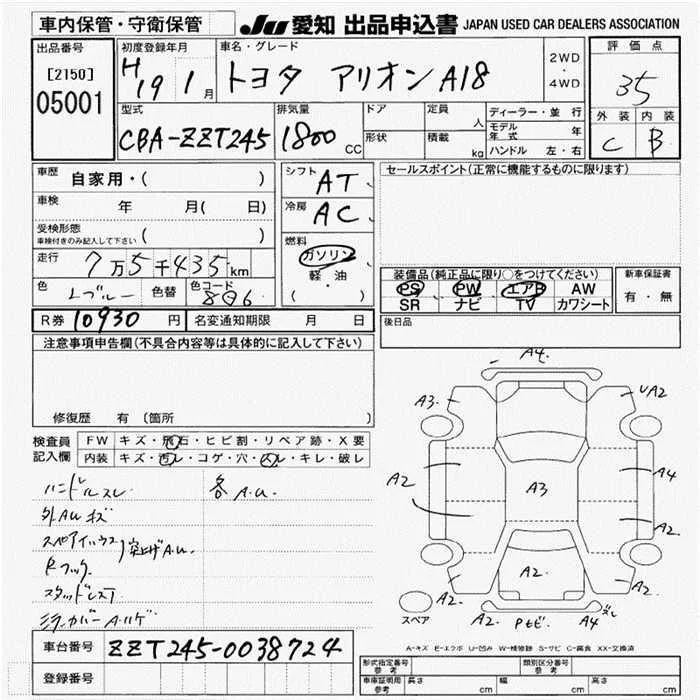 車内保管・守衛保管
JU 愛知 出品申込書 JAPAN USED CAR DEALERS ASSOCIATION
出品番号
[2150]
05001
初度登録年月
H 19 1 月
車名・グレード
トヨタ アリオン A18
2WD
・
4WD
評価点
35
外装 内装
C B
型式
CBA-ZZT245
排気量
1800 CC
ドア
形状
定員 人
積載 kg
ディーラー・並行
モデル年式 年
ハンドル 左・右
車歴 自家用・( )
車検 年 月( 日)
受検形態
車検付きのみ記入して下さい ( )
走行 7万5千435km
色 Lブルー 色替 色コード 8Q6
シフト AT
冷房 AC
燃料
ガソリン
軽・油
( )
セールスポイント(正常に機能するものに限ります)
装備品(純正品に限り○をつけてください)
PS PW エアB AW
SR ナビ TV カワシート
新車保証書
有・無
R券 10930 円 名変通知期限 月 日
後日品
注意事項申告欄(不具合内容等は具体的に記入して下さい)
修復歴 有 (箇所 )
検査員記入欄
FW キズ・飛石・ヒビ割・リペア跡・X要
内装 キズ・汚レ・コゲ・穴・スレ・キレ・破レ
ハンドルスレ 各A.U.
外AUキズ
スペアイハウス
突上げA.U.
Rフック
スタッドレスT
ミラーカバーA.ハゲ
A4
A3
UA2
A2
A3
A4
A2
A2
A2
A2
PモビA4
スペア
A-キズ E-エクボ U-凹み W-補修跡 S-サビ C-腐食 XX-交換済
車台番号 ZZT245-0038724
登録番号
形式指定番号 参考
類別区分番号 参考
車庫証明用 参考 長さ cm 幅 cm 高さ cm